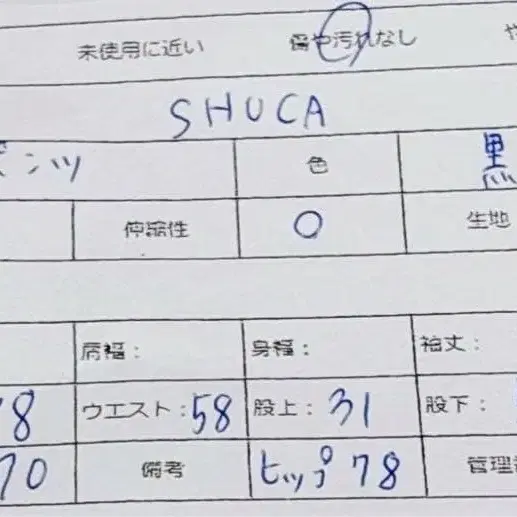 未使用に近い 傷や汚れなし
SHUCA
パンツ 色 黒
伸縮性 ○ 生地
肩幅： 身幅： 袖丈：
8 ウエスト：58 股上：31 股下：
70 備考 ヒップ78 管理